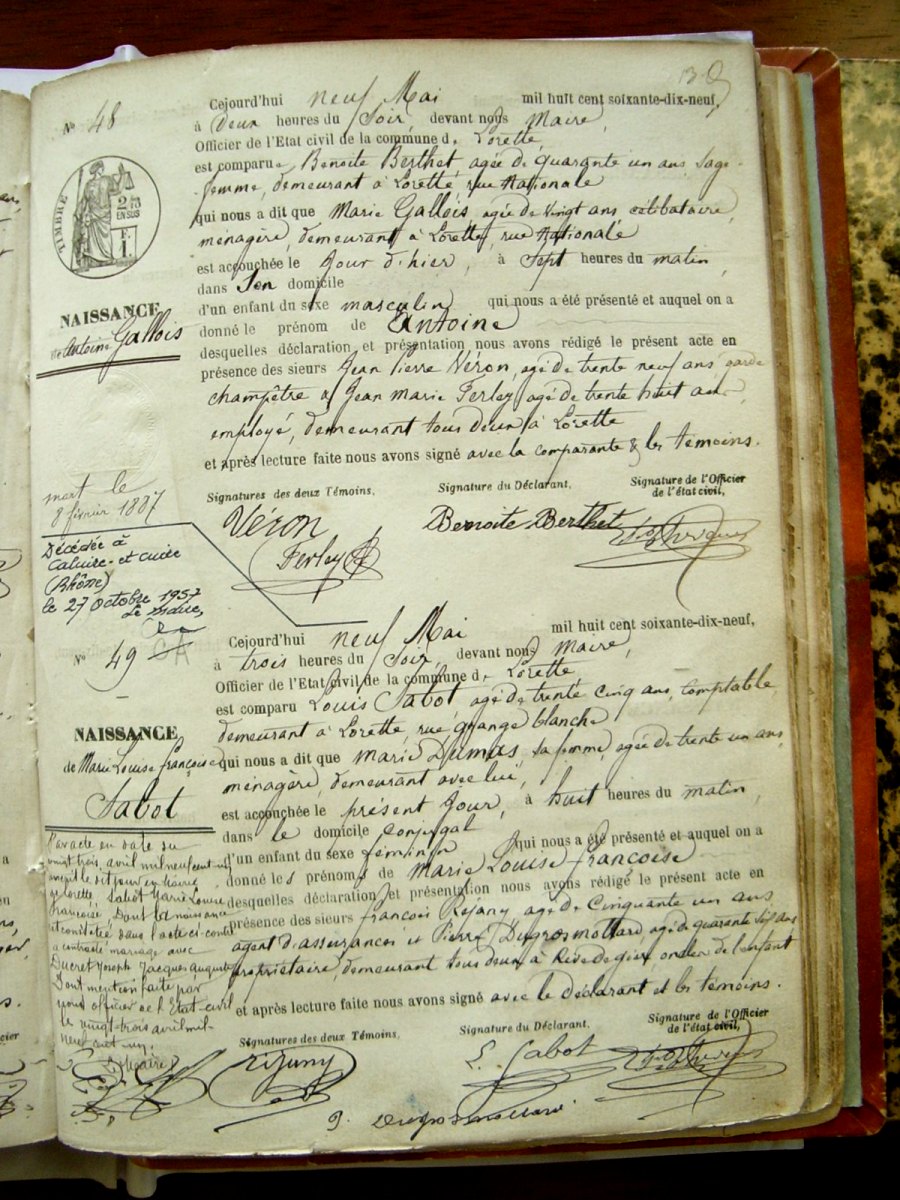 Nº 48
TIMBRE
EN SUS
NAISSANCE
de Antoine Gallois
Cejourd'hui neuf Mai mil huit cent soixante-dix-neuf,
à Deux heures du Soir, devant nous Maire,
Officier de l'Etat civil de la commune d. Lorette
est comparue Benoite Berthet agée de quarante un ans, Sage-
femme, demeurant à Lorette, rue Nationale
qui nous a dit que Marie Gallois, agée de vingt ans, célibataire,
ménagère, demeurant à Lorette, rue Nationale
est accouchée le jour d'hier, à Sept heures du matin,
dans Son domicile
d'un enfant du sexe masculin qui nous a été présenté et auquel on a
donné le prénom de Antoine
desquelles déclaration et présentation nous avons rédigé le présent acte en
présence des sieurs Jean Pierre Véron, agé de trente neuf ans garde
champêtre & Jean Marie Ferley agé de trente huit ans,
employé, demeurant tous Deux à Lorette
et après lecture faite nous avons signé avec la comparante & les témoins.
Signatures des deux Témoins,
Signature du Déclarant,
Signature de l'Officier
de l'état civil,
Véron
Benoite Berthet
Ferley
mort le
8 février 1887
Décédée à
Caluire-et-cuire
(Rhône)
le 27 octobre 1957
Le maire,
Nº 49
NAISSANCE
de Marie Louise françoise
Sabot
Cejourd'hui neuf Mai mil huit cent soixante-dix-neuf,
à trois heures du Soir, devant nous Maire,
Officier de l'Etat civil de la commune d. Lorette
est comparu Louis Sabot agé de trente cinq ans, comptable
demeurant à Lorette, rue grange blanche
qui nous a dit que Marie Dumas, sa femme, agée de trente un ans,
ménagère, demeurant avec lui,
est accouchée le présent jour, à huit heures du matin,
dans le domicile conjugal
d'un enfant du sexe féminin qui nous a été présenté et auquel on a
donné les prénoms de Marie Louise françoise
desquelles déclaration et présentation nous avons rédigé le présent acte en
présence des sieurs françois Rejany, agé de Cinquante un ans,
agent d'assurances et Pierre Dugrosmottard agé de quarante six ans
propriétaire, demeurant tous deux à Rive de gier, oncles de l'enfant
et après lecture faite nous avons signé avec le Déclarant et les témoins.
Par acte en date du
vingt trois avril mil neuf cent un
devant le dit jour en mairie
de Lorette, Sabot Marie Louise
françoise, Dont la naissance
est constatée dans l'acte ci-contre
a contracté mariage avec
Ducret Joseph Jacques Auguste
Dont mention faite par
nous officier de l'Etat-civil
le vingt-trois avril mil-
neuf cent un.
Signatures des deux Témoins,
Signature du Déclarant,
Signature de l'Officier
de l'état civil,
Rejany
L. Sabot
Dugrosmottard